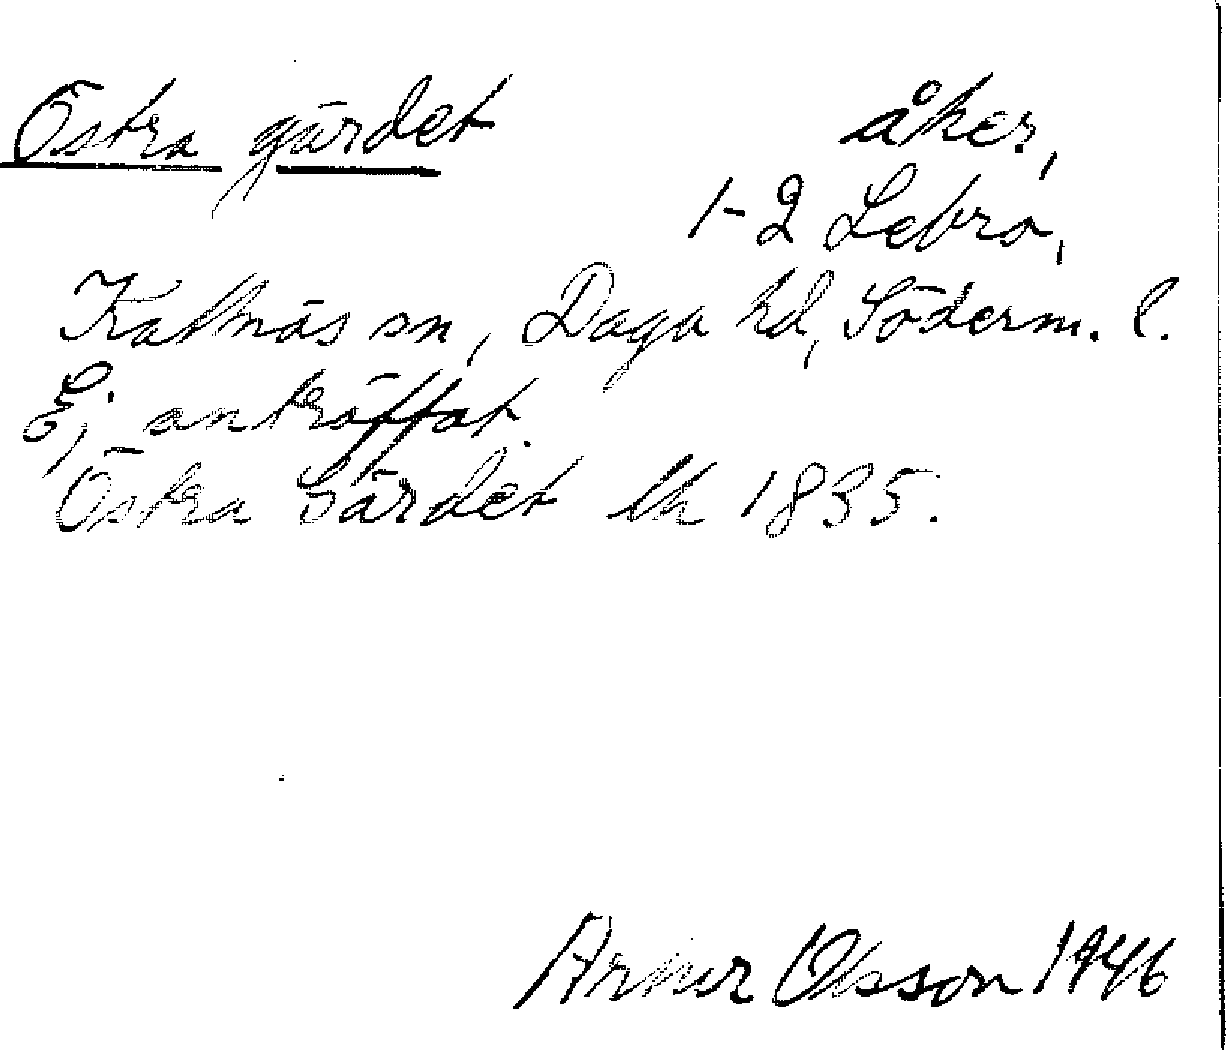 Östra gärdet åker,
1-2 Lebro,
Kattnäs sn, Daga hd, Söderm. l.
Ej anträffat.
Östra Gärdet lh 1835.
Olsson 1946